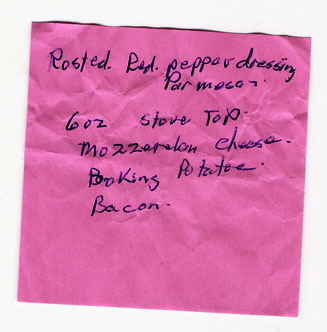 Rosted Red pepper dressing
Parmesan.
6oz stove Top.
Mozzerelan cheese.
Booking Potatoe.
Bacon.